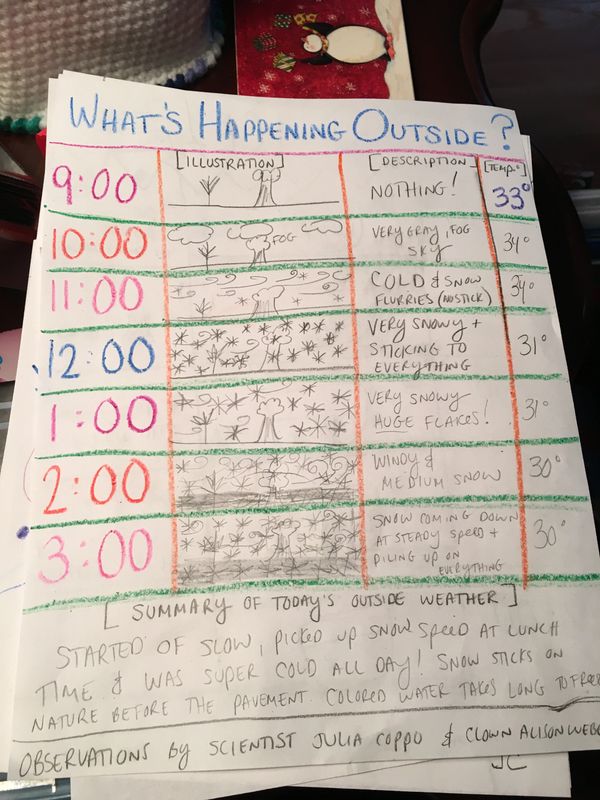 WHAT'S HAPPENING OUTSIDE?
[ILLUSTRATION] [DESCRIPTION] [TEMP.°]
9:00 NOTHING! 33°
10:00 FOG VERY GRAY, FOG 34°
SKY
11:00 COLD & SNOW 34°
FLURRIES (NO STICK)
12:00 VERY SNOWY + 31°
STICKING TO
EVERYTHING
1:00 VERY SNOWY 31°
HUGE FLAKES!
2:00 WINDY & 30°
MEDIUM SNOW
3:00 SNOW COMING DOWN 30°
AT STEADY SPEED +
PILING UP ON
EVERYTHING
[SUMMARY OF TODAY'S OUTSIDE WEATHER]
STARTED OF SLOW, PICKED UP SNOW SPEED AT LUNCH
TIME & WAS SUPER COLD ALL DAY! SNOW STICKS ON
NATURE BEFORE THE PAVEMENT. COLORED WATER TAKES LONG TO FREEZE
OBSERVATIONS by SCIENTIST JULIA COPPO & CLOWN ALISON